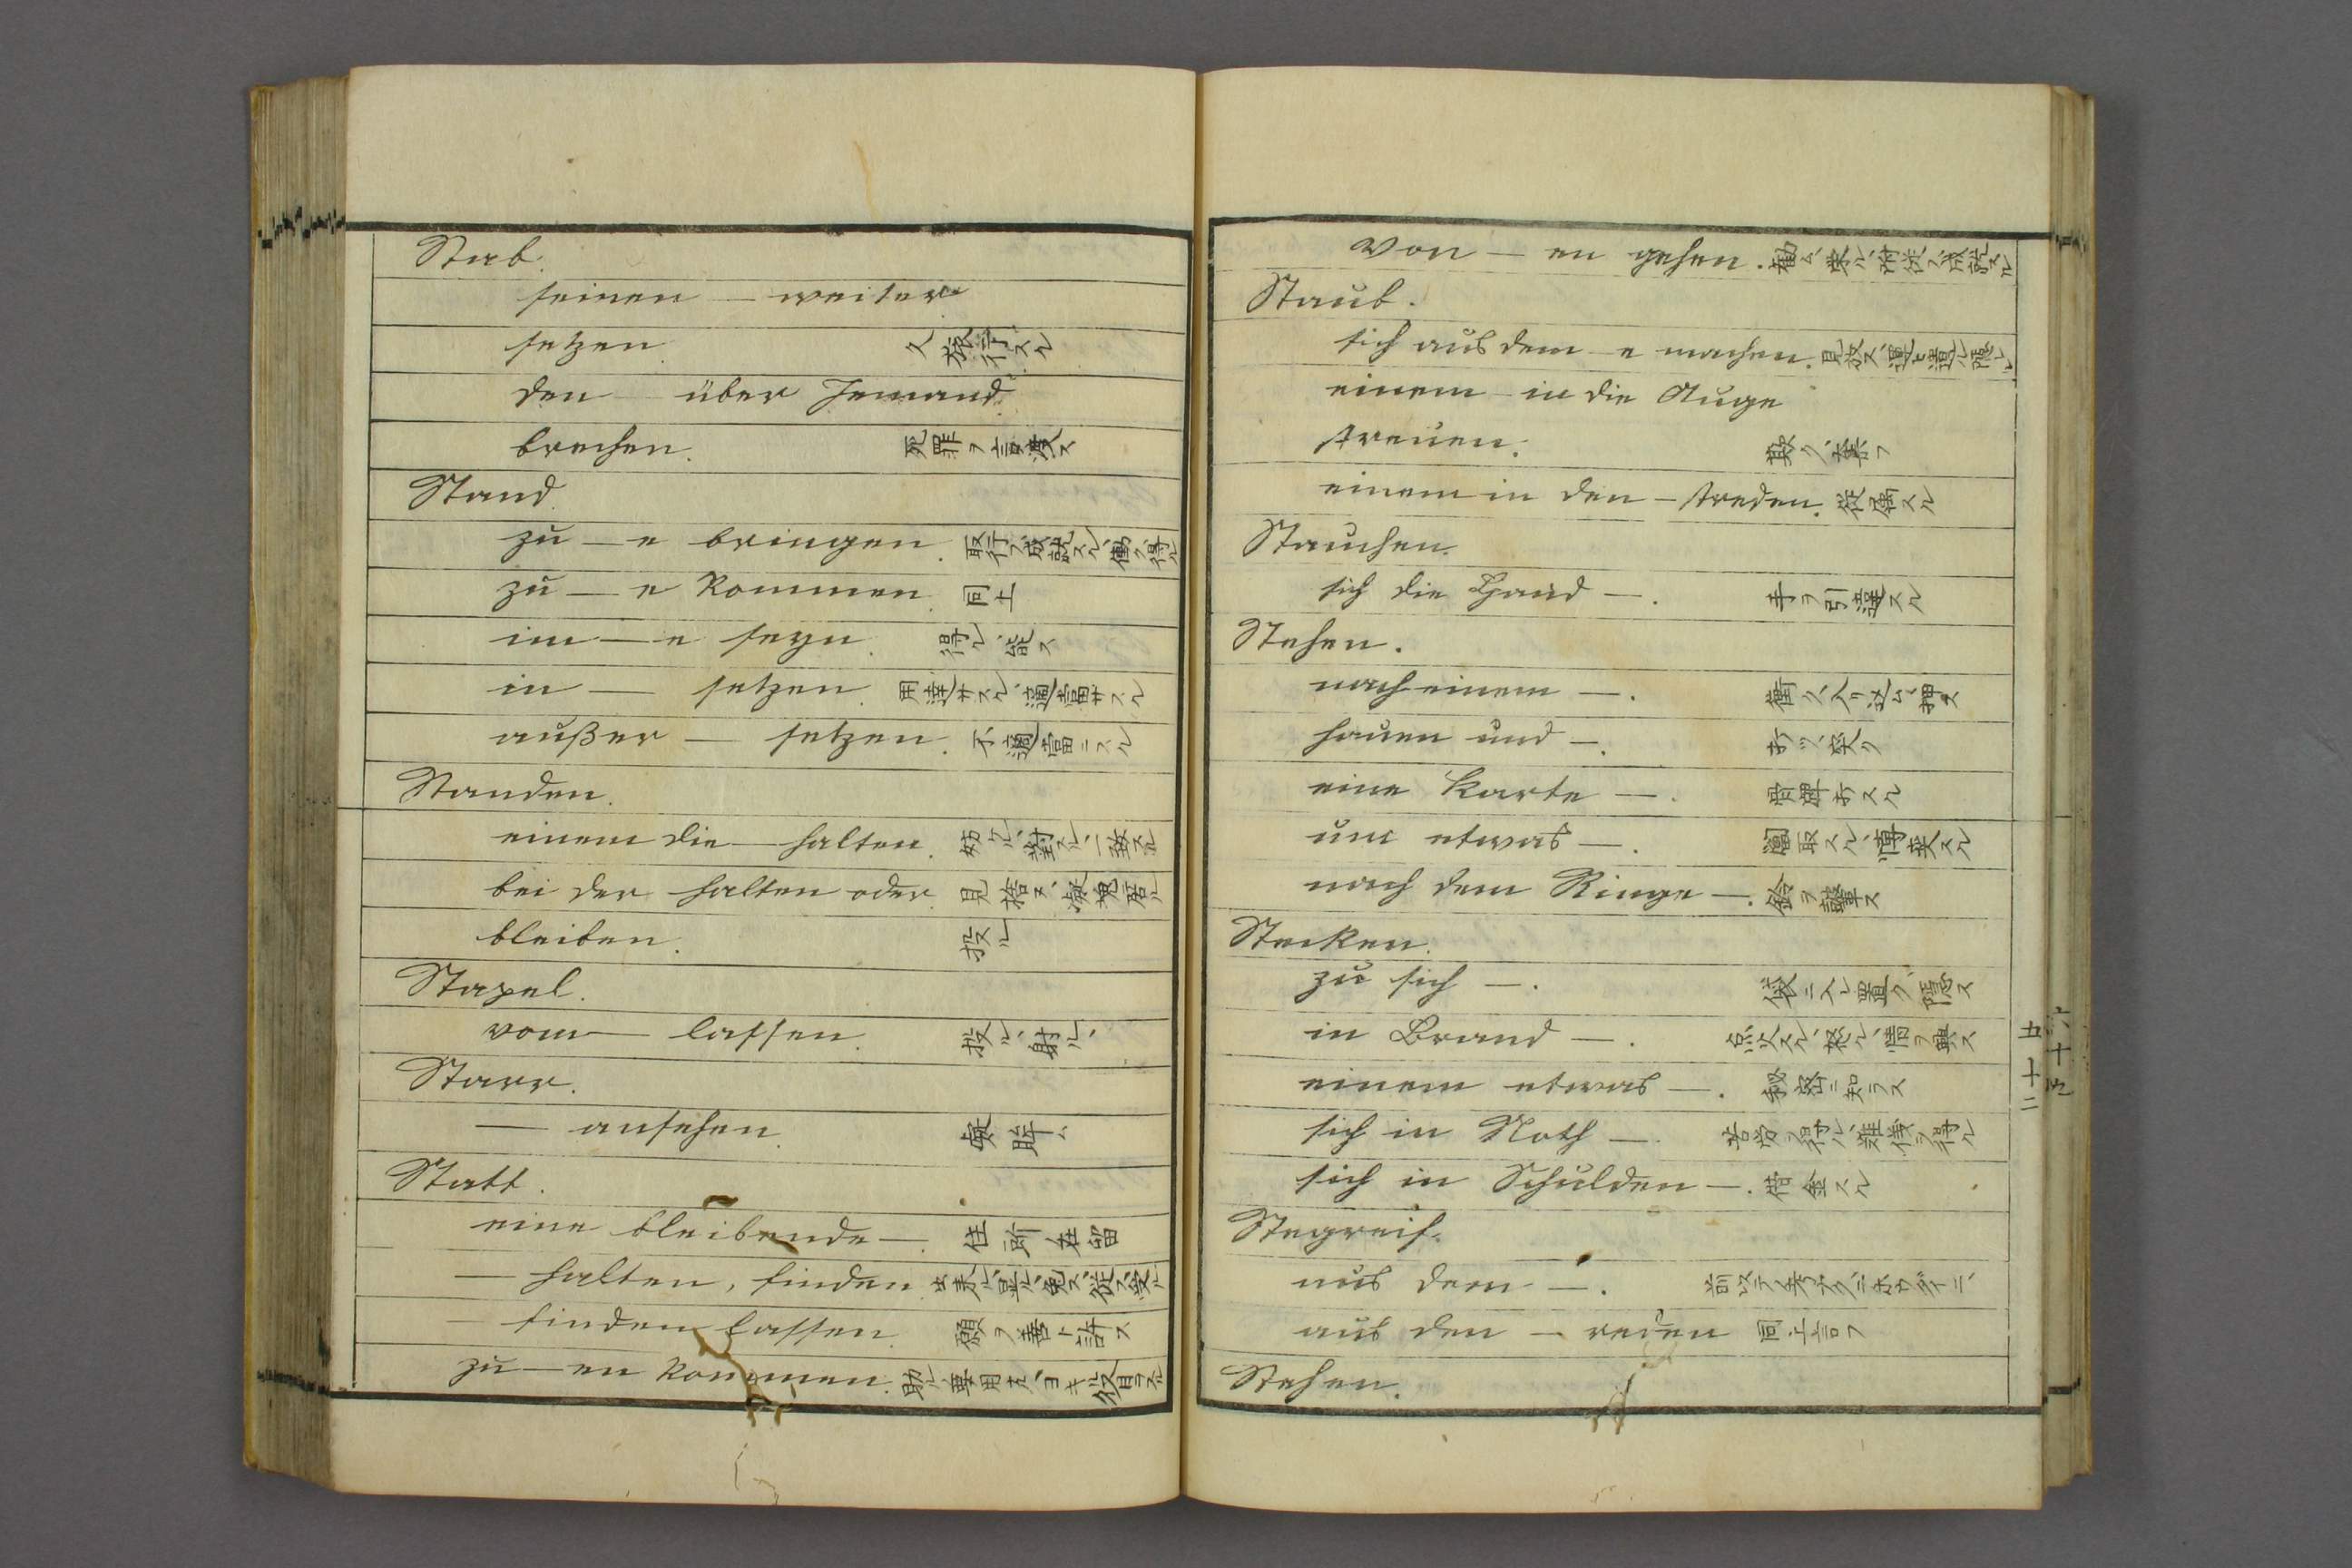 Stab.
seinen — weiter
setzen. 久旅行スル
den — über Jemand
brechen. 死罪ヲ言渡ス
Stand.
zu — e bringen. 取行フ、成就スル、働ク、得ル
zu — e kommen. 同上
im — e seyn. 得ル、能ス
in — setzen. 用達サスル、適當サスル
außer — setzen. 不適當ニスル
Standen.
einem die — halten. 妨ル、對スル、一致スル
bei der halten oder 見捨ヌ、
bleiben. 投ル
Stapel.
vom — lassen. 投ル、射ル、
Starr.
— ansehen. 凝眸ム
Statt.
eine bleibende —. 住所、在留
— halten, finden. 出来ル、
— finden lassen. 願ヲ善ト許ス
zu — en kommen. 助ル、要用ナル、ヨキ
von — en gehen. 勧ム、来ル、成就スル
Staub.
sich aus dem — e machen. 見放ス、
einem — in die Auge
streuen. 欺ク、
einem in den — treden.
Stauchen.
sich die Hand —. 手ヲ引違スル
Stehen.
nach einem —. 衝ク、入リ込ム、押ス
hauen und —. 打ツ、突ク
eine Karte —. 骨牌打スル
um etwas —. 鬮取スル、
nach dem Ringe —. 鈴ヲ
Stecken.
zu sich —. 袋ニ入レ置ク、隠ス
in Brand —. 点火スル、怒ル、
einem etwas —. 秘密ニ知ラス
sich in Noth —. 苦労ヲ得ル、難儀ヲ得ル
sich in Schulden —. 借金スル
Stegreif.
aus dem —.
aus den — reden 同上言フ
Stehen.